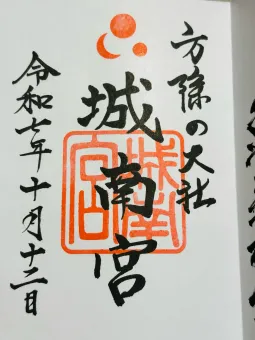 方除の大社
城南宮
令和七年十月十二日
城南宮